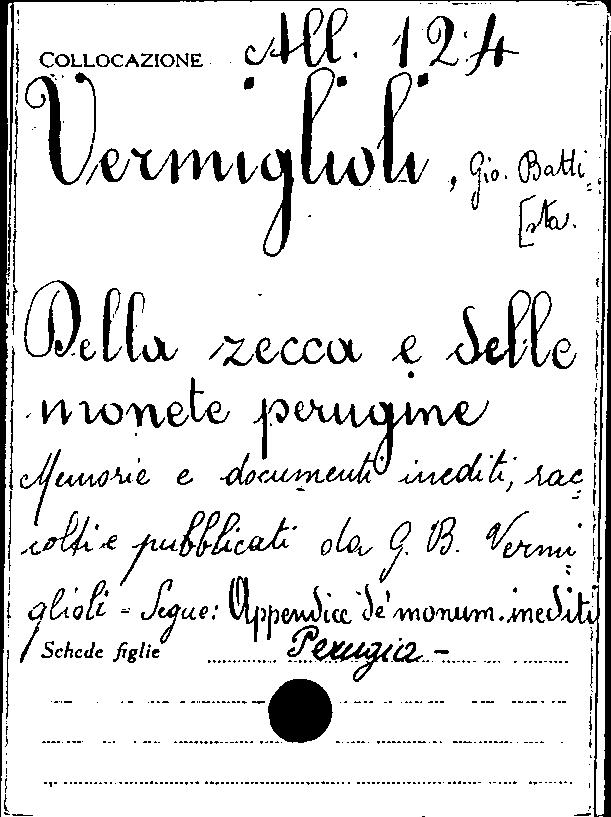 COLLOCAZIONE All. 124
Vermiglioli, Gio. Batti=
[sta.
Della zecca e delle
monete perugine
Memorie e documenti inediti, rac=
colti e pubblicati da G. B. Vermi=
glioli - Segue: Appendice de' monum. inediti
Schede figlie Perugia -